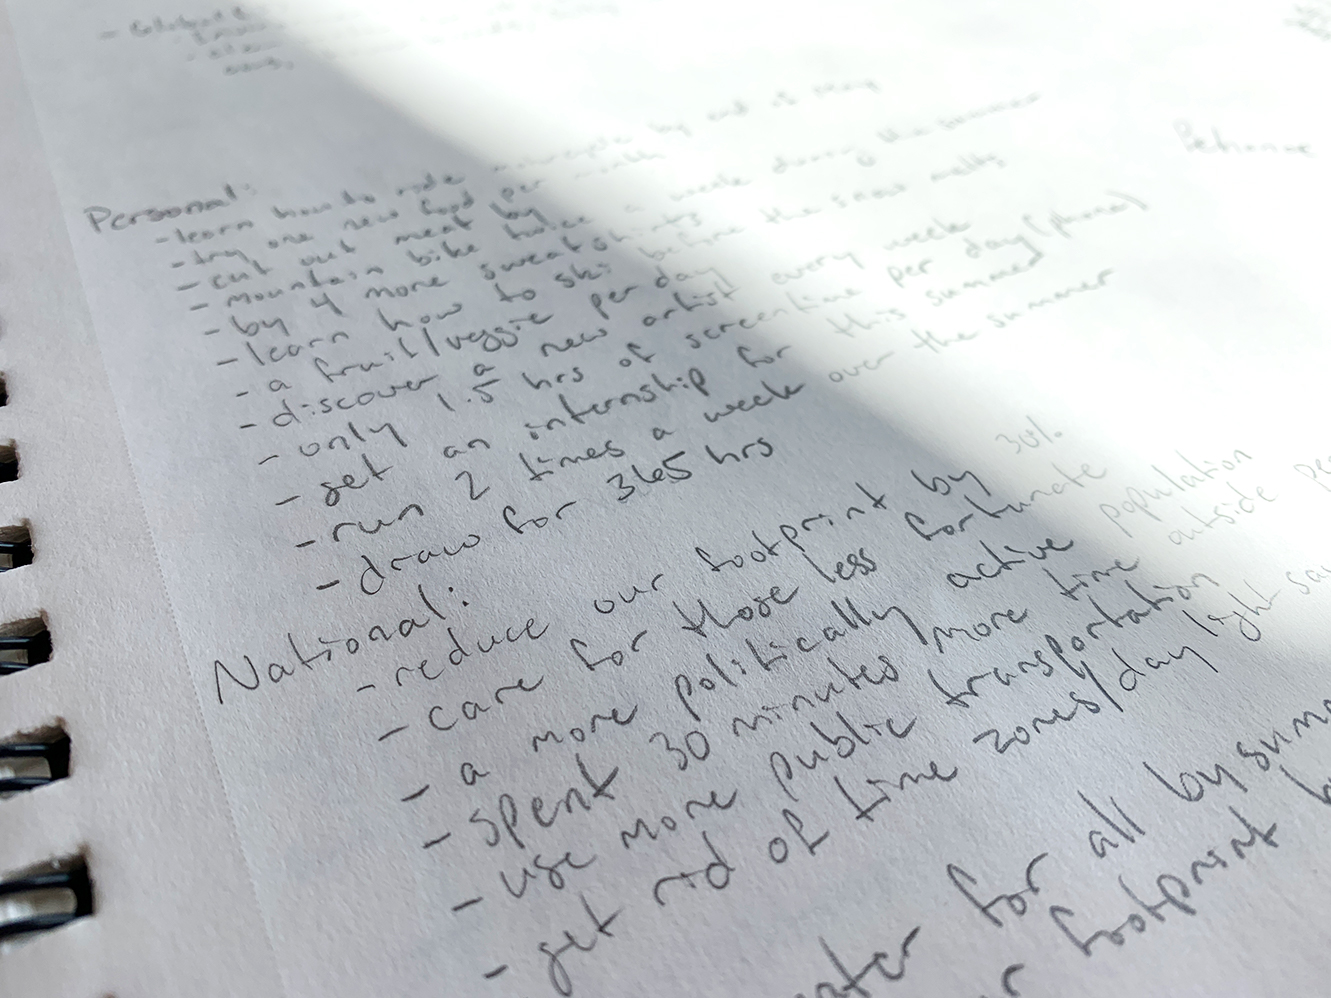 Personal:
- learn how to ride motorcycle by end of May
- try one new food per month
- cut out meat by
- mountain bike twice a week during the summer
- by 4 more sweatshirts
- learn how to ski before the snow melts
- a fruit/veggie per day
- discover a new artist every week
- only 1.5 hrs of screentime per day (phone)
- get an internship for this summer
- run 2 times a week over the summer
- draw for 365 hrs
National:
- reduce our footprint by 30%
- care for those less fortunate
- a more politically active population
- spent 30 minutes more time outside per
- use more public transportation
- get rid of time zones/day light sav
for all by
footprint